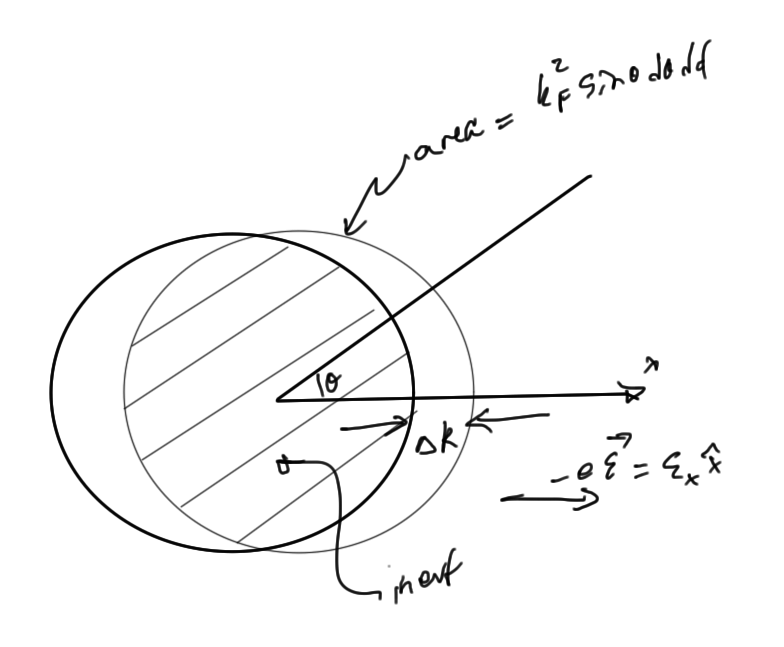 area = k_F^2 sinθ dθ dϕ
θ
x
Δk
-e ℰ⃗ = ℰ_x x̂
inert